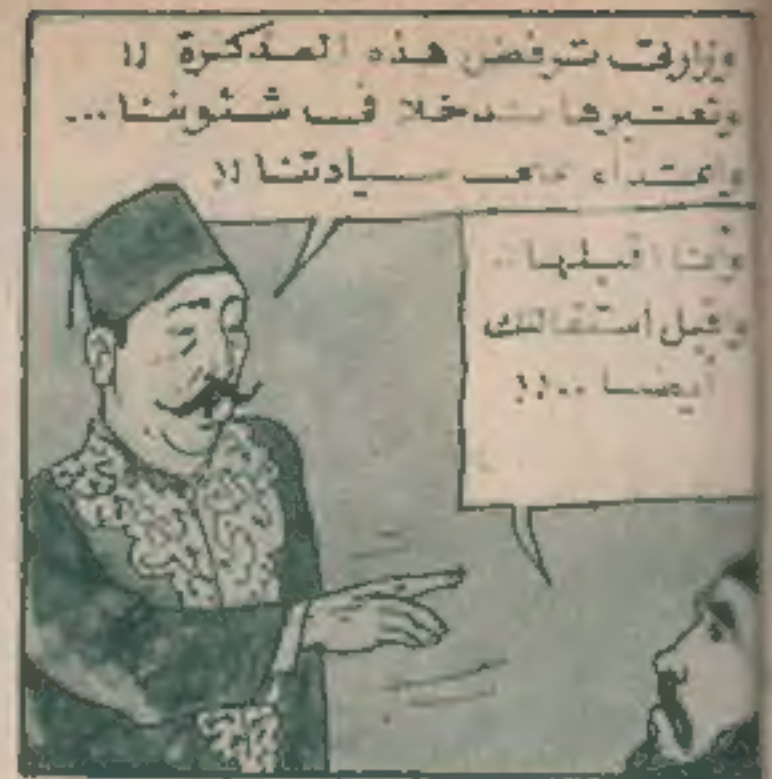 وزارتى ترفض هذه المذكرة !!
وتعتبرها تدخلا فى شئوننا ...
واعتداء على سيادتنا !!
وأنا اقبلها ..
واقبل استقالتك
ايضا ..!!